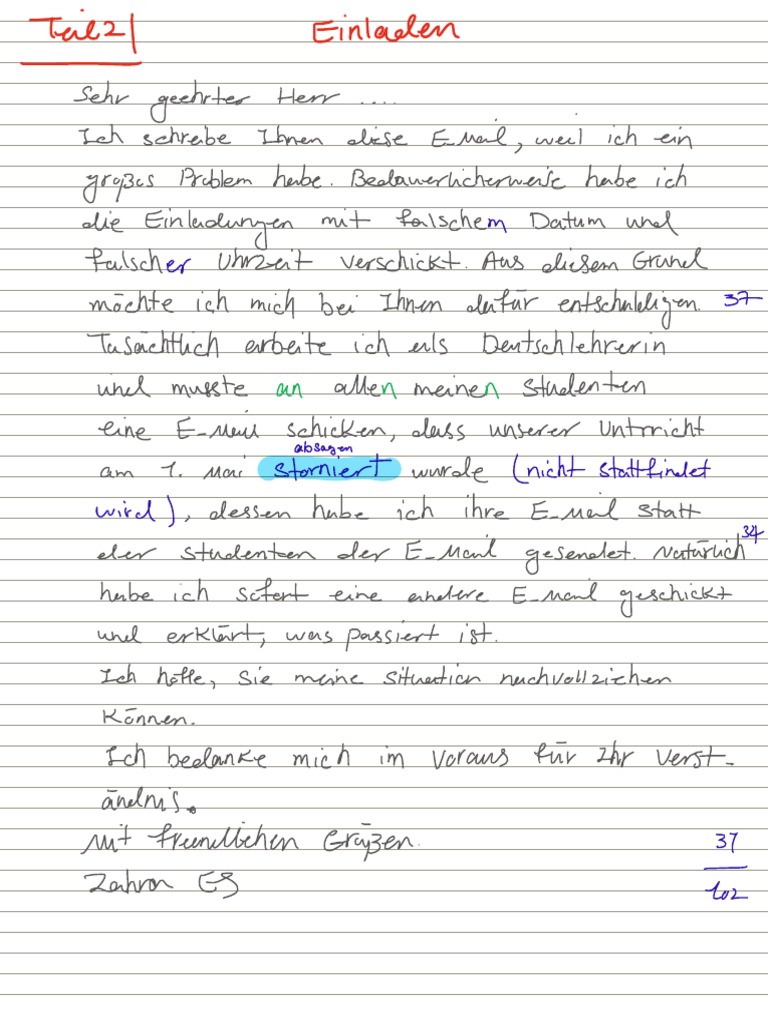 Teil 2 Einladen
Sehr geehrter Herr ....
Ich schreibe Ihnen diese E-Mail, weil ich ein
großes Problem habe. Bedauerlicherweise habe ich
die Einladungen mit falschem Datum und
falscher Uhrzeit verschickt. Aus diesem Grund
möchte ich mich bei Ihnen dafür entschuldigen. 37
Tasächtlich arbeite ich als Deutschlehrerin
und musste an allen meinen Studenten
eine E-Mail schicken, dass unserer Untrricht
absagen
am 1. Mai storniert wurde (nicht stattfindet
wird), dessen habe ich ihre E-Mail statt
34
der Studenten der E-Mail gesendet. Natürlich
habe ich sofort eine andere E-Mail geschickt
und erklärt, was passiert ist.
Ich hoffe, Sie meine Situation nachvollziehen
können.
Ich bedanke mich im Voraus für Ihr Verst-
ändnis.
Mit freundlichen Grüßen. 37
Zahra Eg 102